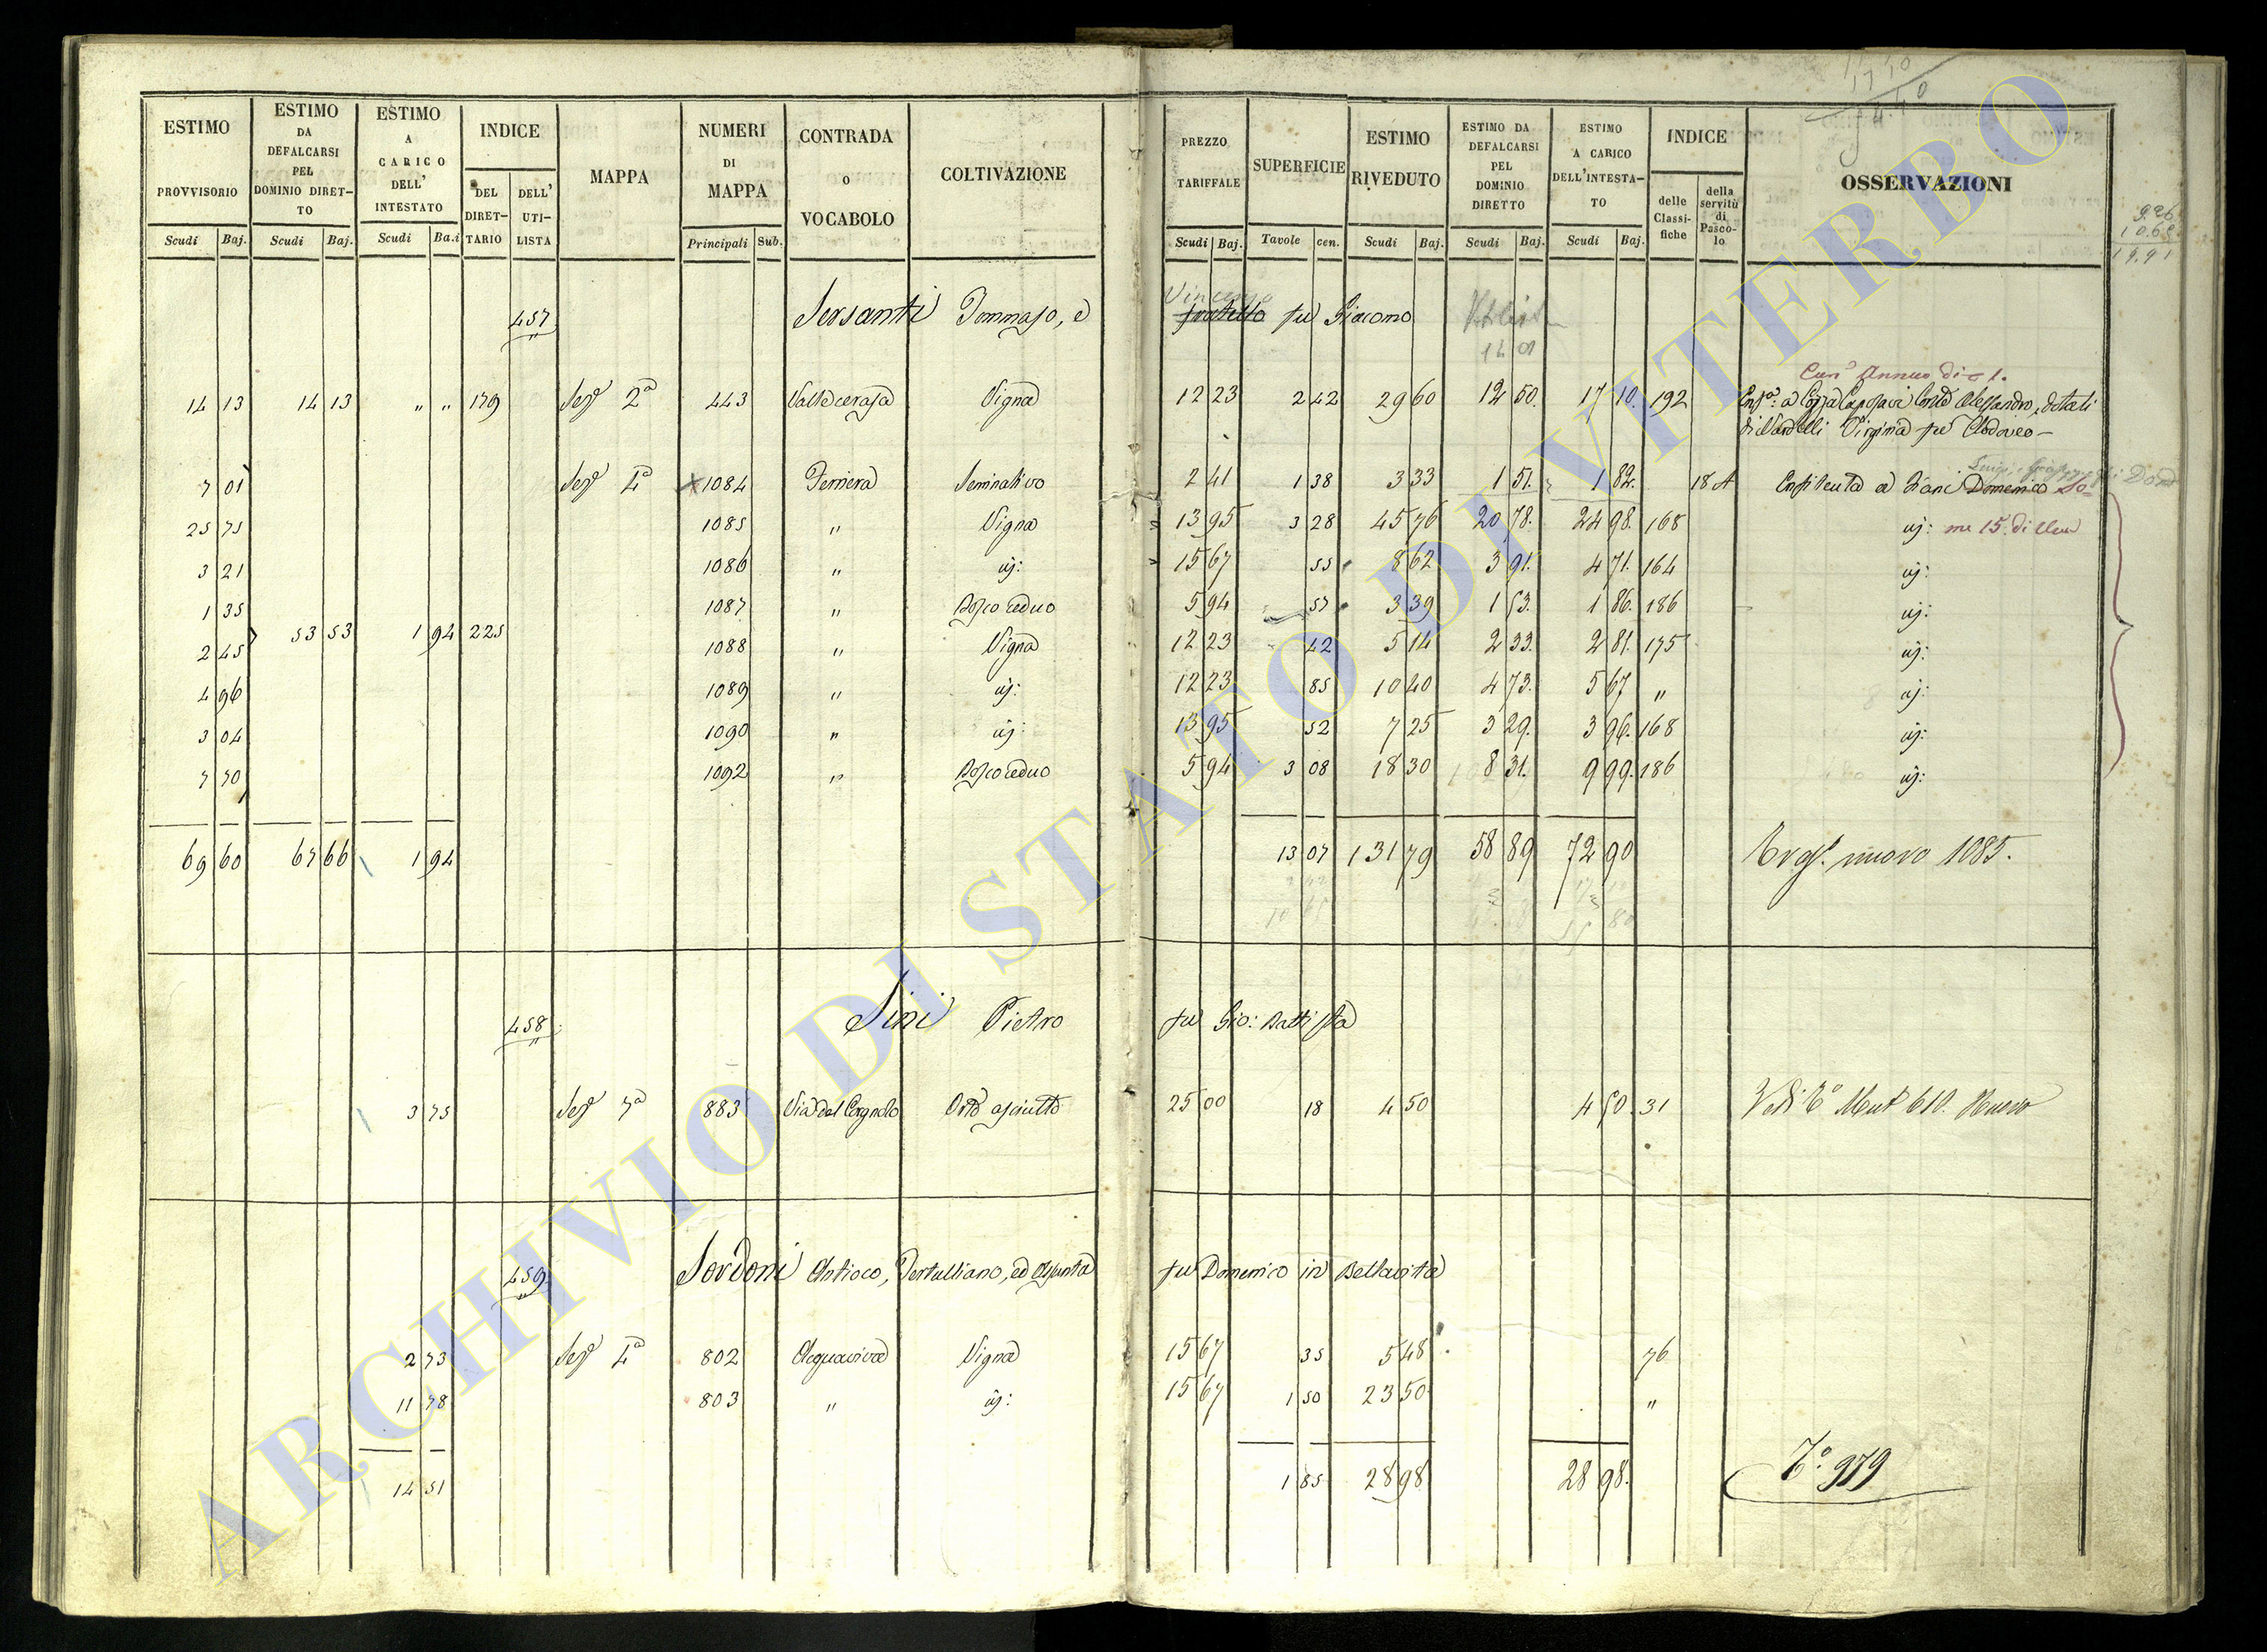 ESTIMO PROVVISORIO | ESTIMO DA DEFALCARSI PEL DOMINIO DIRET-TO | ESTIMO A CARICO DELL' INTESTATO | INDICE DEL DIRET-TARIO | DELL' UTI-LISTA | MAPPA | NUMERI DI MAPPA | CONTRADA O VOCABOLO | COLTIVAZIONE | PREZZO TARIFFALE | SUPERFICIE | ESTIMO RIVEDUTO | ESTIMO DA DEFALCARSI PEL DOMINIO DIRETTO | ESTIMO A CARICO DELL'INTESTA-TO | INDICE delle Classi-fiche | della servitù di Pasco-lo | OSSERVAZIONI
Scudi Baj. | Scudi Baj. | Scudi Ba.i | Principali Sub. | Scudi Baj. | Tavole cen. | Scudi Baj. | Scudi Baj. | Scudi Baj.
457 Sersanti Tommaso, e Vincenzo fratello fu Giacomo
14 01
Can^e Annuo di 1.
14 13 | 14 13 | " " | 179 | Sez^e 2^a | 443 | Valle cerasa | Vigna | 12 23 | 2 42 | 29 60 | 12 50. | 17 10. | 192 | Alessandro, dotali
Virginia fu Clodoveo –
7 01 | Sez^e 4^a | 1084 | Ferriera | Seminativo | 2 41 | 1 38 | 3 33 | 1 51. | 1 82. | 18 A | Enfiteuta a Ziani Domenico
25 75 | 1085 | " | Vigna | 13 95 | 3 28 | 45 76 | 20 78. | 24 98. | 168 | ij: me 15. di
3 21 | 1086 | " | ij: | 15 67 | 55 | 8 62 | 3 91. | 4 71. | 164 | ij:
1 35 | 1087 | " | Bosco ceduo | 5 94 | 57 | 3 39 | 1 53. | 1 86. | 186 | ij:
53 53 | 1 94 | 225
2 45 | 1088 | " | Vigna | 12 23 | 42 | 5 14 | 2 33. | 2 81. | 175 | ij:
4 96 | 1089 | " | ij: | 12 23 | 85 | 10 40 | 4 73. | 5 67 | " | ij:
3 04 | 1090 | " | ij: | 13 95 | 52 | 7 25 | 3 29. | 3 96. | 168 | ij:
7 70 | 1092 | " | Bosco ceduo | 5 94 | 3 08 | 18 30 | 8 31. | 9 99. | 186 | ij:
69 60 | 67 66 | 1 94 | 13 07 | 131 79 | 58 89 | 72 90 | nuovo 1085.
458 Sini Pietro fu Gio: Battista
3 75 | Sez^e 7^a | 883 | Via del Corgnolo | Orto asciutto | 25 00 | 18 | 4 50 | 4 50. | 31 | Vedi T^o Mut 610. Nuovo
459 Sordoni Antioco, Tertulliano, ed Assunta fu Domenico in Bellavita
2 73 | Sez^e 4^a | 802 | Acquaviva | Vigna | 15 67 | 35 | 5 48 | 76
11 78 | 803 | " | ij: | 15 67 | 1 50 | 23 50 | "
14 51 | 1 85 | 28 98 | 28 98. | T^o 979
ARCHIVIO DI STATO DI VITERBO